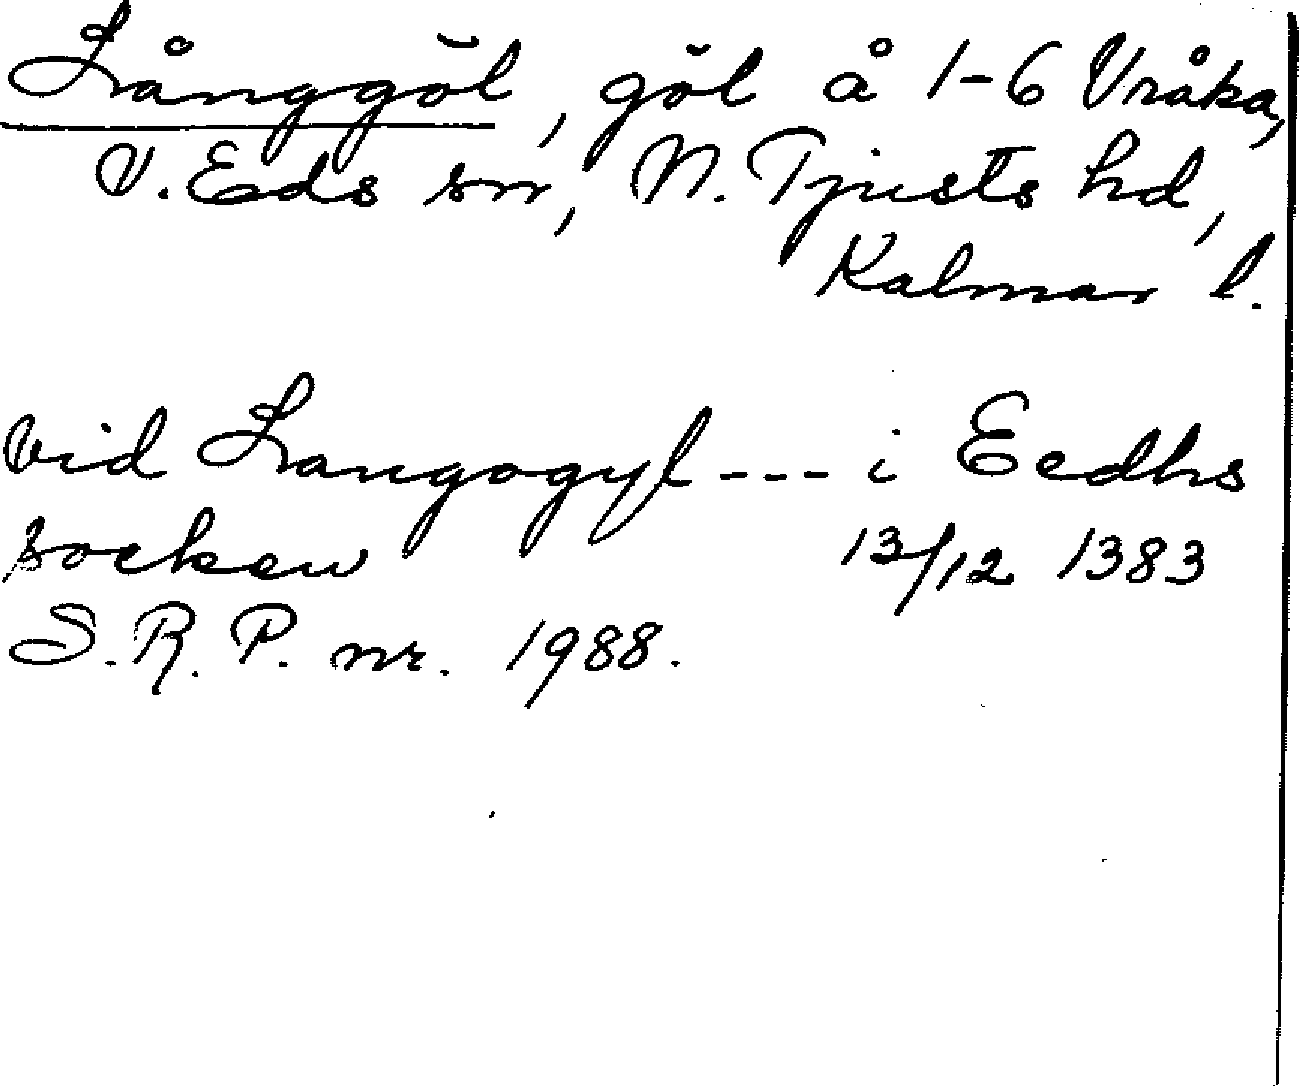 Långgöl, göl å 1-6 Vråka,
V. Eds sn, N. Tjusts hd,
Kalmar l.
vid Langogyl --- i Eedhs
socken 13/12 1383
S. R. P. nr. 1988.